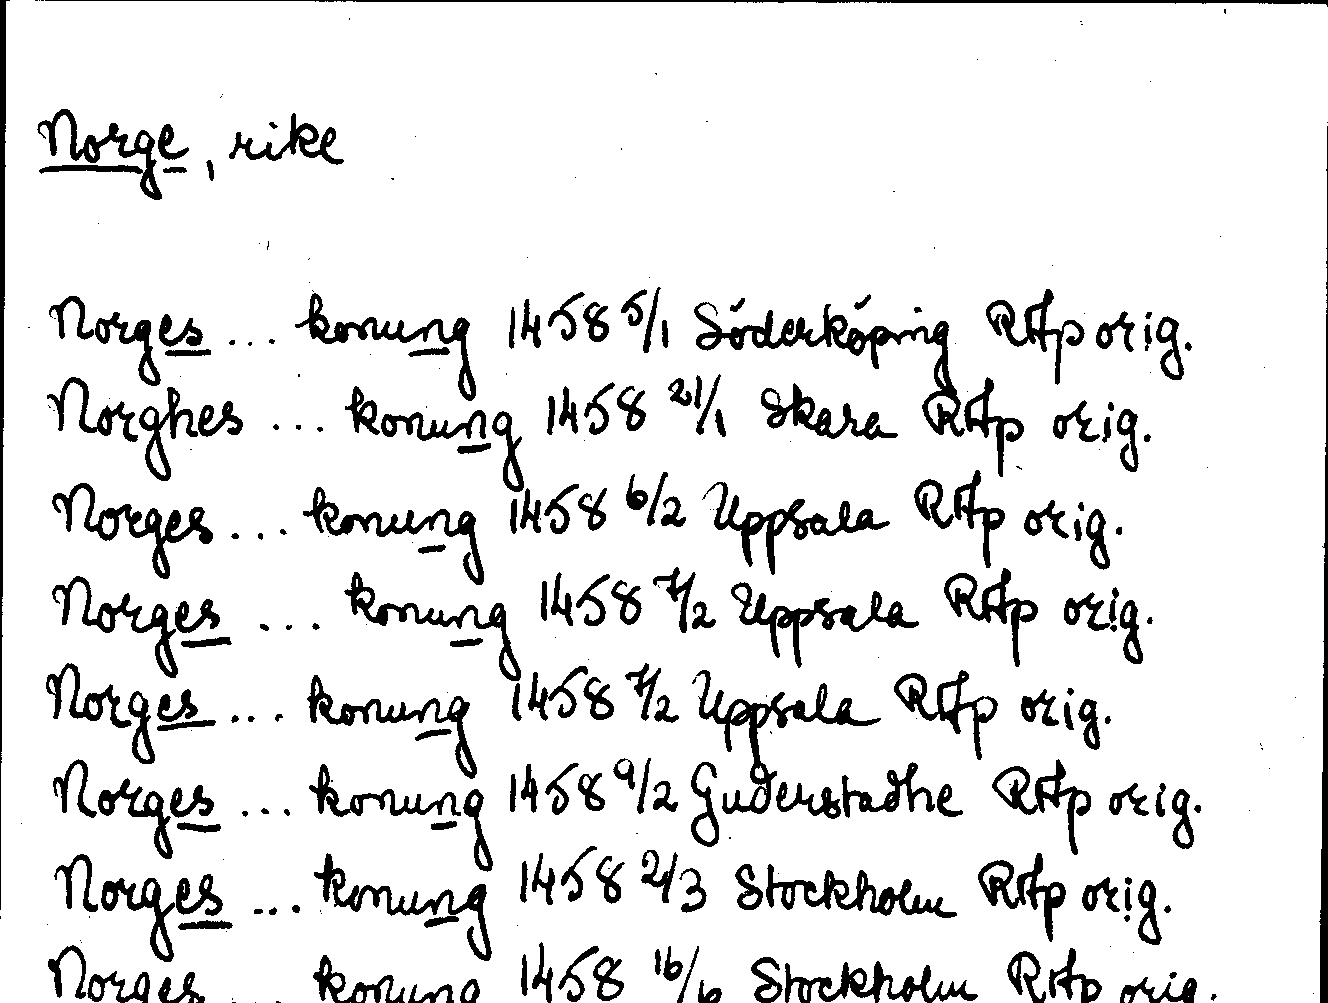 Norge, rike
Norges ... konung 1458 5/1 Söderköping RAp orig.
Norghes ... konung 1458 21/1 Skara RAp orig.
Norges ... konung 1458 6/2 Uppsala RAp orig.
Norges ... konung 1458 7/2 Uppsala RAp orig.
Norges ... konung 1458 7/2 Uppsala RAp orig.
Norges ... konung 1458 9/2 Guderstadhe RAp orig.
Norges ... konung 1458 2/3 Stockholm RAp orig.
Norges ... konung 1458 16/6 Stockholm RAp orig.